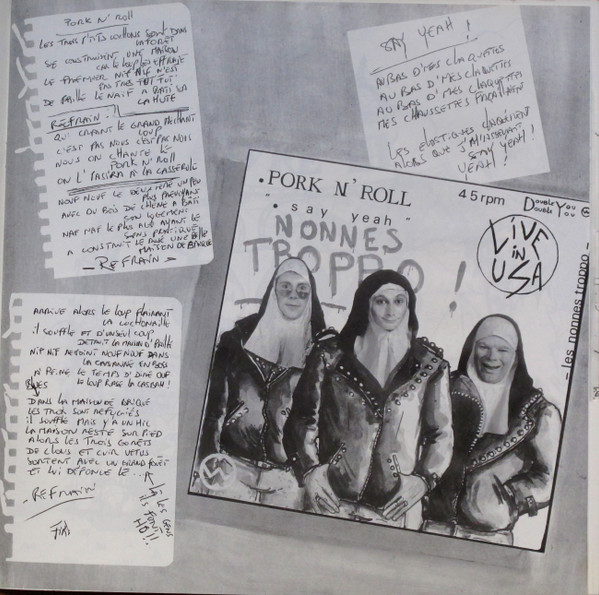 PORK N' ROLL
LES TROIS P'TITS COCHONS SONT DANS
LA FORÊT
SE CONSTRUIRENT UNE MAISON
CAR LE LOUP LES EFFRAIE
LE PREMIER NIF NIF N'EST
PAS TRÈS FUTÉ
DE PAILLE LE NAÏF A BÂTI SA
HUTE
REFRAIN:
QUI CRAINT LE GRAND MÉCHANT
LOUP
C'EST PAS NOUS C'EST PAS NOUS
NOUS ON CHANTE LE
PORK N' ROLL
ON L'PASS'RA À LA CASSEROLE
NOUF NOUF LE DEUXIÈME UN PEU
PLUS PRÉVOYANT
AVEC DU BOIS DE CHÊNE A BÂTI
SON LOGEMENT
NAF NAF LE PLUS ÂGÉ AYANT LE
SENS PRATIQUE
A CONSTRUIT LE RUSÉ UNE BELLE
MAISON DE BRIQUE
- REFRAIN -
ARRIVE ALORS LE LOUP FLAIRANT
LA COCHONAILLE
IL SOUFFLE ET D'UN SEUL COUP
DÉTRUIT LA MAISON D'PAILLE
NIF NIF REJOINT NOUF NOUF DANS
LA CABANNE EN BOIS
À PEINE LE TEMPS D'DIRE OUF
LE LOUP RASE LA CABANE!
DANS LA MAISON DE BRIQUE
LES TROIS SONT RÉFUGIÉS
IL SOUFFLE MAIS Y A UN HIC
LA MAISON RESTE SUR PIED
ALORS LES TROIS GORETS
DE CLOUS ET CUIR VÊTUS
SORTENT AVEC UN GRAND FOUET
ET LUI DÉFONCE LE ...
LÀ LES GENS
FONT
HO!!
- REFRAIN
FIN
SAY YEAH!
AU BAS D'MES CLAQUETTES
AU BAS D'MES CLAQUETTES
AU BAS D'MES CLAQUETTES
MES CHAUSSETTES
LES ÉLASTIQUES CLAQUÈRENT
ALORS QUE J'
SAY YEAH!
YEAH!
• PORK N' ROLL
45 rpm
Double You
Double You
" • say yeah "
NONNES
TROPPO!
LIVE
in
USA
- les nonnes troppo -